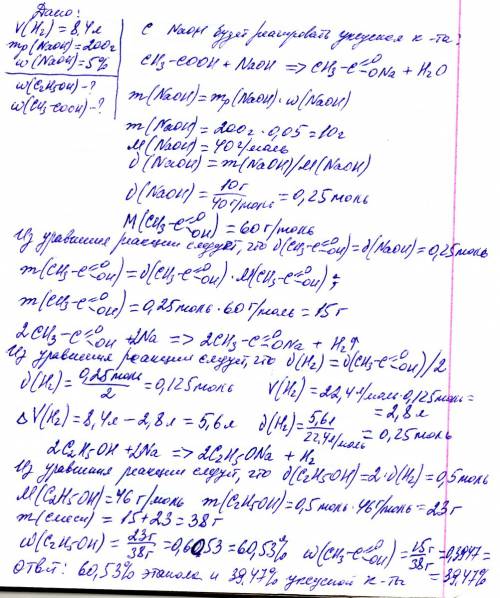 Дано:
V(H2) = 8,4л
mр(NaOH) = 200г
w(NaOH) = 5%
w(C2H5OH) - ?
w(CH3-COOH) - ?
С NaOH будет реагировать уксусная к-та:
CH3-COOH + NaOH => CH3-C=O ONa + H2O
m(NaOH) = mр(NaOH) · w(NaOH)
m(NaOH) = 200г · 0,05 = 10г
M(NaOH) = 40г/моль
υ(NaOH) = m(NaOH)/M(NaOH)
υ(NaOH) = 10г / 40г/моль = 0,25 моль
M(CH3-C=O OH) = 60 г/моль
Из уравнения реакции следует, что υ(CH3-C=O OH) = υ(NaOH) = 0,25 моль
m(CH3-C=O OH) = υ(CH3-C=O OH) · M(CH3-C=O OH);
m(CH3-C=O OH) = 0,25 моль · 60 г/моль = 15 г
2CH3-C=O OH + 2Na => 2CH3-C=O ONa + H2↑
Из уравнения реакции следует, что υ(H2) = υ(CH3-C=O OH)/2
υ(H2) = 0,25 моль / 2 = 0,125 моль V(H2) = 22,4 л/моль · 0,125 моль = 2,8 л
ΔV(H2) = 8,4л - 2,8л = 5,6л υ(H2) = 5,6л / 22,4л/моль = 0,25 моль
2C2H5OH + 2Na => 2C2H5ONa + H2
Из уравнения реакции следует, что υ(C2H5OH) = 2 · υ(H2) = 0,5 моль
M(C2H5OH) = 46 г/моль m(C2H5OH) = 0,5 моль · 46 г/моль = 23 г
m(смеси) = 15 + 23 = 38 г
w(C2H5OH) = 23г / 38г = 0,6053 = 60,53% w(CH3-C=O OH) = 15г / 38г = 0,3947 = 39,47%
Ответ: 60,53% этанола и 39,47% уксусной к-ты